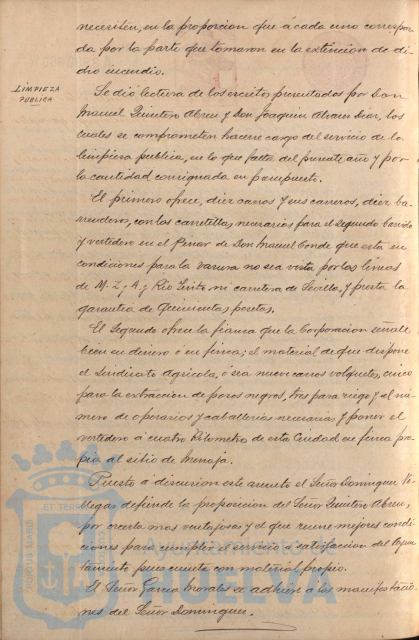 necesiten, en la proporcion que á cada uno correspon
da por la parte que tomaron en la extincion de di
cho incendio.
LIMPIEZA
PUBLICA
Se dió lectura de los escritos presentados por Don
Manuel Quintero Abreu y Don Joaquin Alvarez Diaz, los
cuales se comprometen hacerse cargo del servicio de la
limpieza publica, en lo que falta del presente año y por
la cantidad consignada en presupuesto.
El primero ofrece, diez carros y sus carreros, diez ba-
rrenderos, con las carretillas necesarias para el segundo barrido
y vertedero en el Pinar de Don Manuel Conde que esta en
condiciones para la basura no sea vista por las lineas
de M. Z. y A. y Rio Tinto ni carretera de Sevilla, y presta la
garantia de quinientas pesetas.
El segundo ofrece la fianza que la Corporacion señale
bien en dinero ó en finca; el material de que dispone
el Sindicato Agricola, ó sea nueve carros volquetes, cinco
para la extraccion de pozos negros, tres para riego y el nú
mero de operarios y caballerias necesarias y poner el
vertedero á cuatro Kilometros de esta Ciudad en finca pro
pia al sitio de Menaja.
Puesto a discusion este asunto el Señor Dominguez Vi
llegas defiende la proposicion del Señor Quintero Abreu,
por creerla mas ventajosa y el que reune mejores condi
ciones para cumplir el servicio a satisfaccion del Ayun
tamiento pues cuenta con material propio.
El Señor Garcia Morales se adhirió a las manifestacio
nes del Señor Dominguez.
PORTUS MARIS
ET TERRÆ
Ayuntamiento
HUELVA